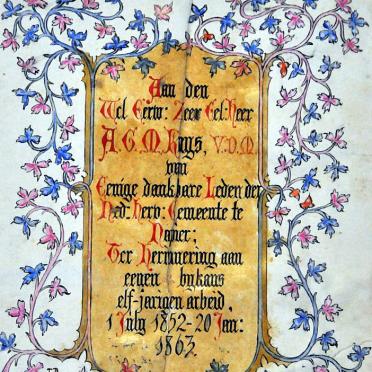 Aan den
Wel Eerw: Zeer Gel: Heer
A. G. M. Kuys, V.D.M.
van
Eenige dankbare Leden der
Ned: Herv: Gemeente te
Ter Herinnering aan
eenen bykans
elf-jarigen arbeid,
1 July 1852-20 Jan:
1863.